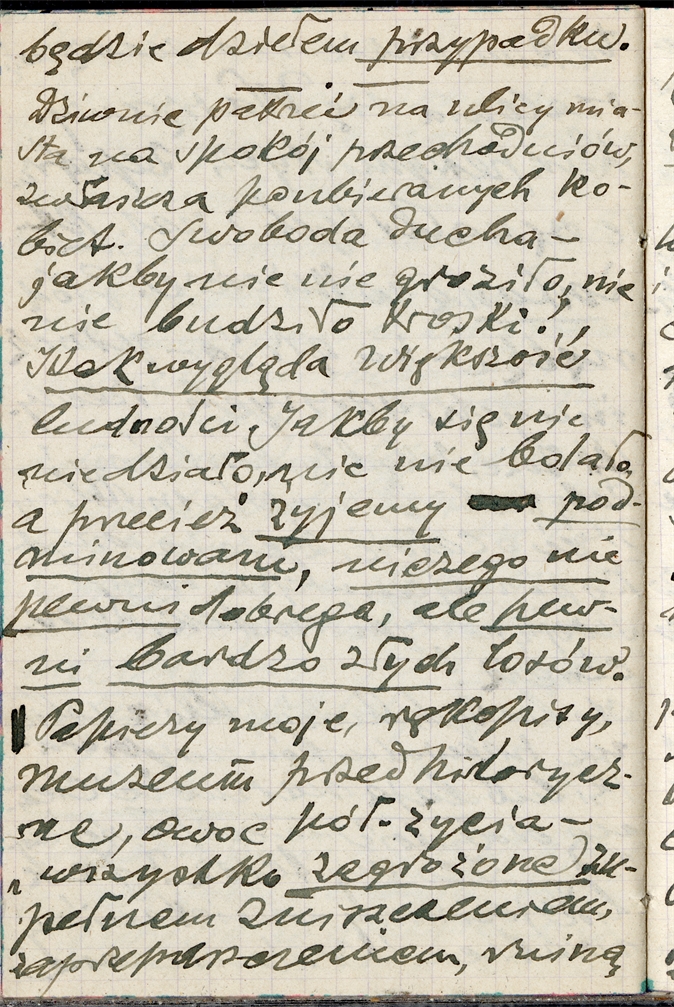 będzie dziełem przypadku.
Dziwnie patrzeć na ulicy mia-
sta na spokój przechodniów,
zwłaszcza poubieranych ko-
biet. Swoboda ducha –
jakby nic nie groziło, nic
nie budziło troski!,
Tak wygląda większość
ludności. Jakby się nic
nie działo, nic nie bolało,
a przecież żyjemy pod-
minowani, niczego nie
pewni dobrego, ale pew-
ni bardzo złych losów.
Papiery moje, rękopisy,
muzeum przedhistorycz-
ne, owoc pół-życia –
wszystko zagrożone zu-
pełnem zniszczeniem,
zaprzepaszczeniem, ruiną